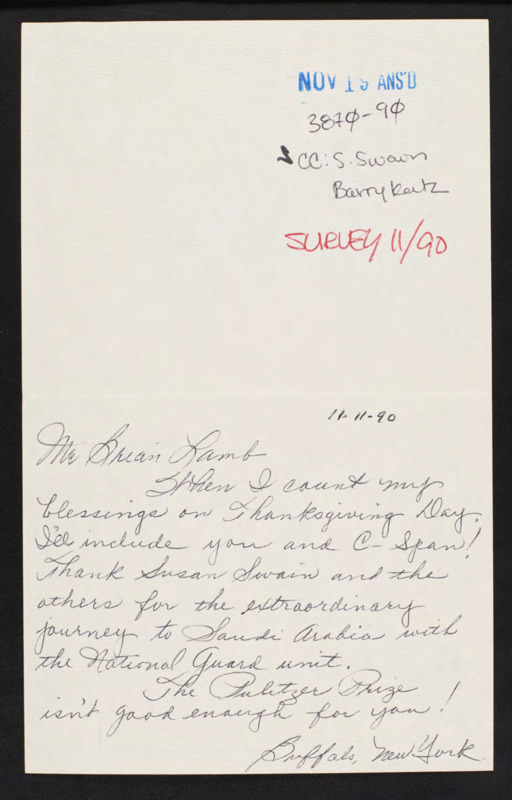 NOV 19 ANS'D
387Ø-9Ø
CC: S. Swain
Barry Katz
SURVEY 11/90
11-11-90
Mr. Brian Lamb
When I count my
blessings on Thanksgiving Day,
I'll include you and C-Span!
Thank Susan Swain and the
others for the extraordinary
journey to Saudi Arabia with
the National Guard unit.
The Pulitzer Prize
isn't good enough for you!
Buffalo, New York.